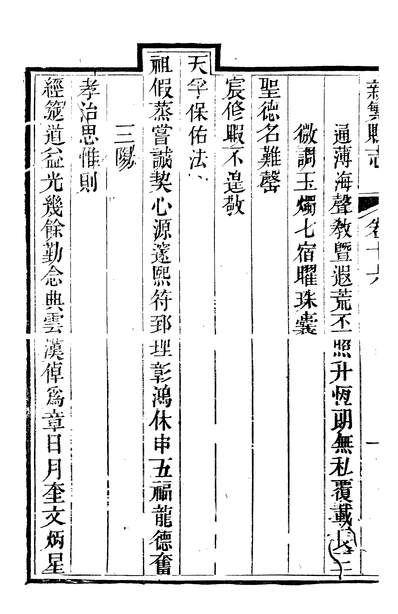 新繁縣志 卷十六 一
通薄海聲教暨遐荒丕照升恆朗無私覆載
微調玉燭七宿曜珠囊
聖德名難罄
宸修暇不遑敬
天孚保佑法
祖假蒸嘗誠契心源遠熙符郅理彰鴻休申五福龍德奮
三陽
孝治思惟則
經筵道益光幾餘勤念典雲漢倬為章日月奎文炳星